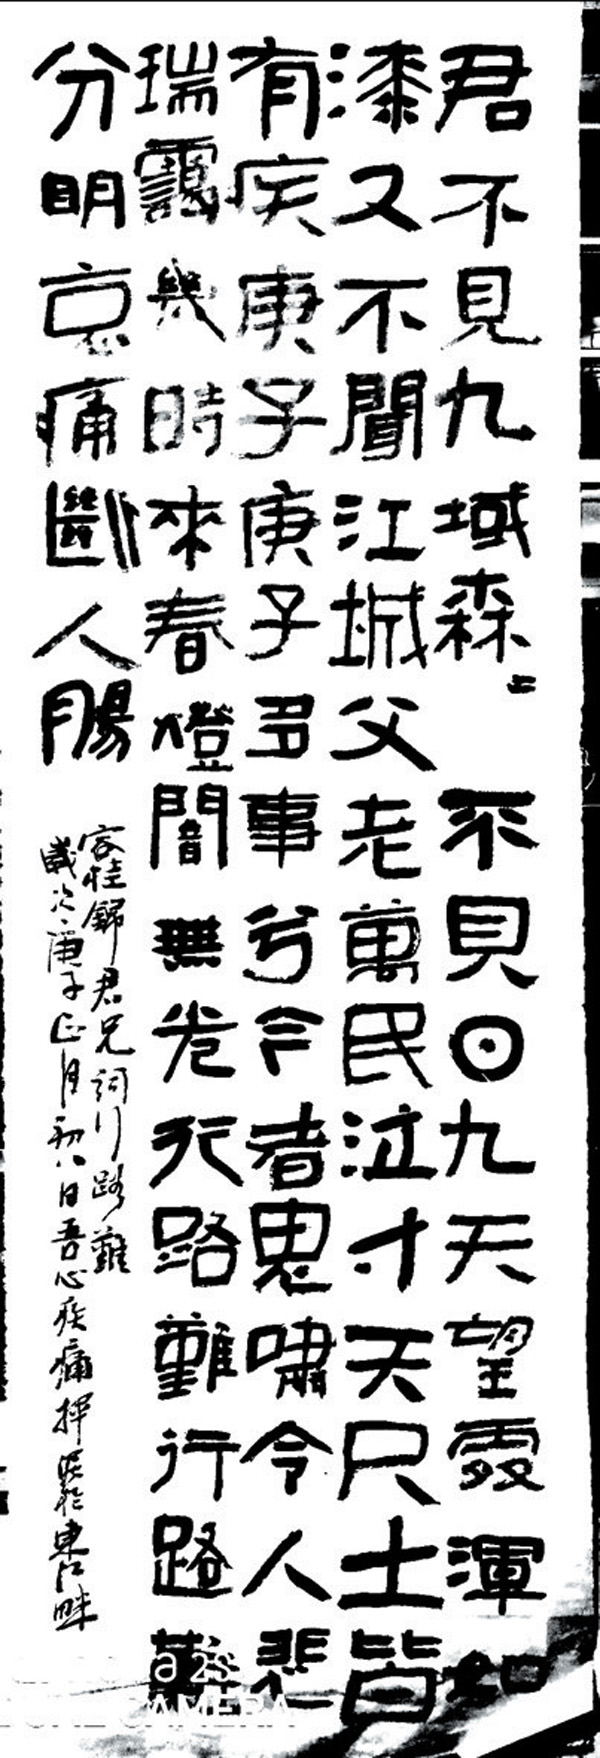 君不見九域森〻不見日九天望雲渾如
漆又不聞江城父老萬民泣寸天尺土皆
有疾庚子庚子多事兮今者鬼嘯令人悲
瑞靄幾時來春燈闇無光行路難行路難
分明哀痛斷人腸
容桂錦君兄詞行路難
歲次庚子正月初八日吾心疾痛揮淚於東江畔
CAMERA